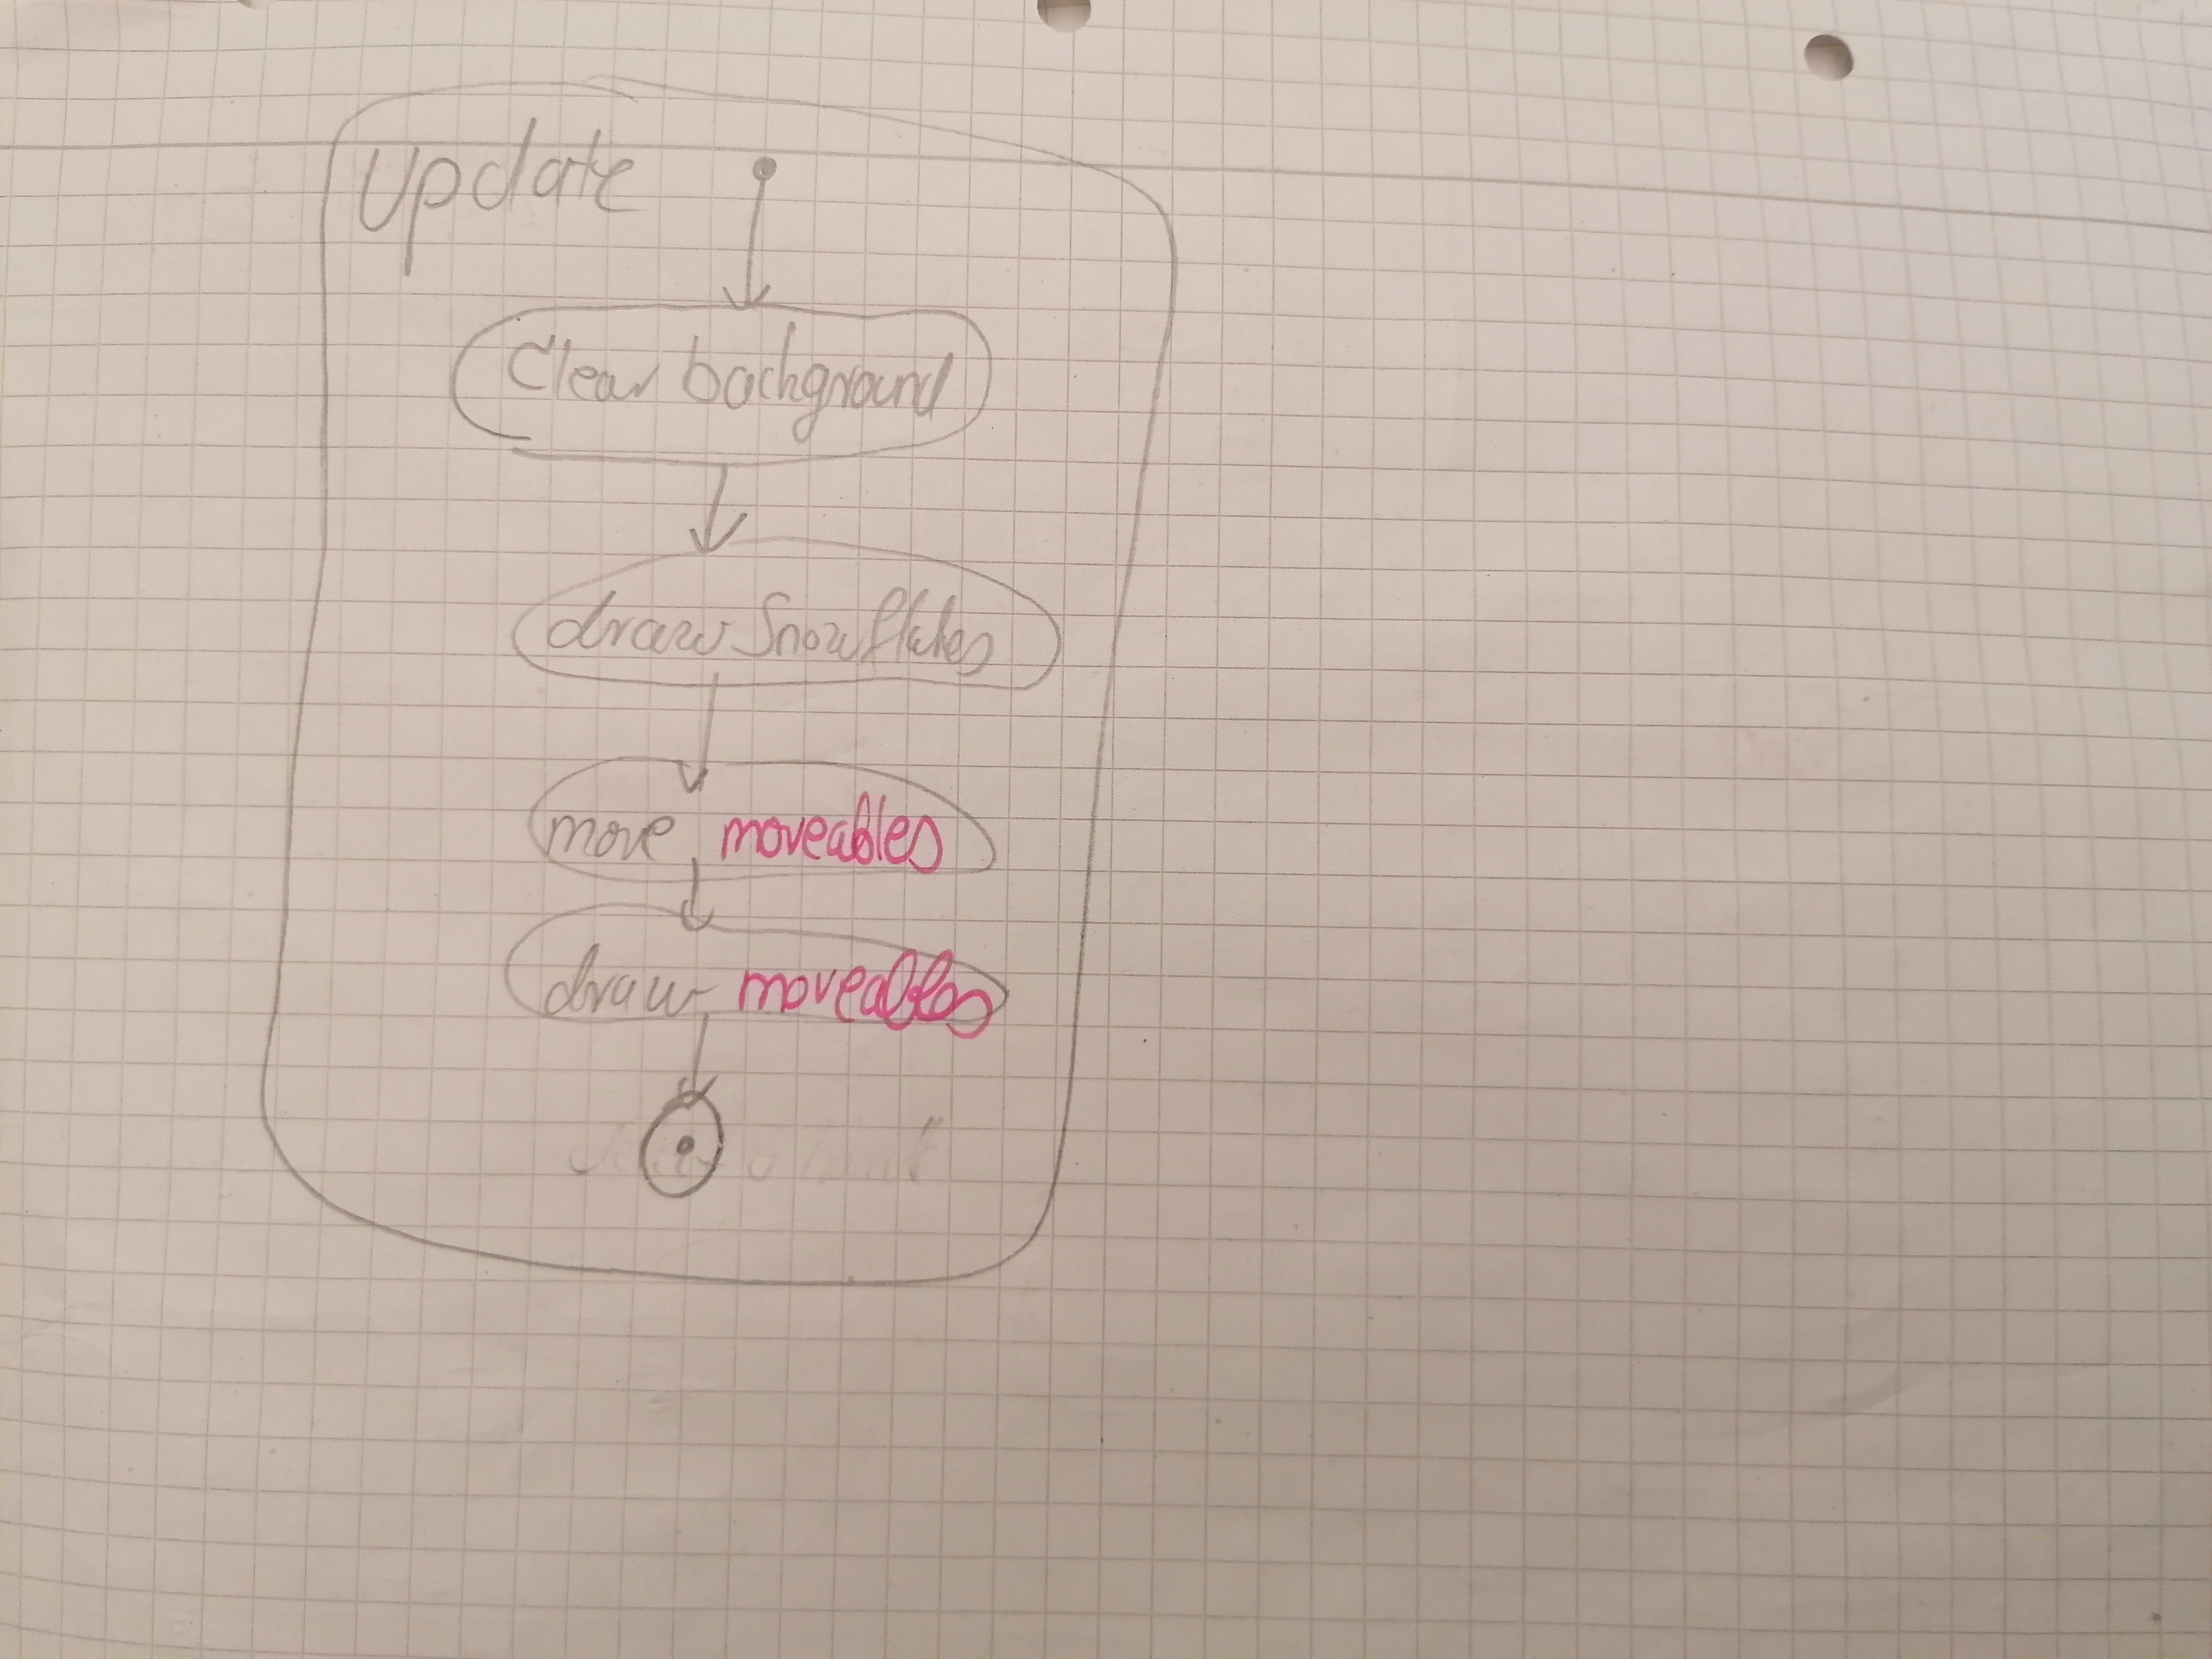 Update
Clear background
draw Snowflakes
move moveables
draw moveables